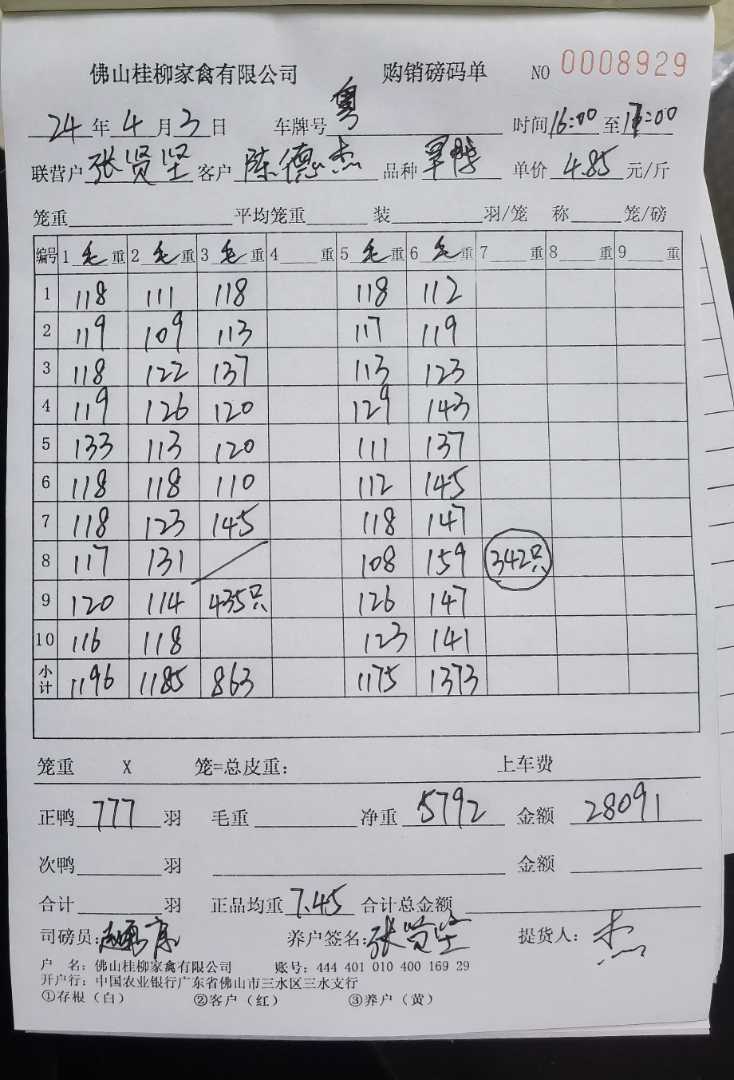 佛山桂柳家禽有限公司 购销磅码单 NO 0008929
24 年 4 月 3 日 车牌号 粤 时间 16:00 至 17:00
联营户 张贤坚 客户 陈德杰 品种 单价 4.85 元/斤
笼重 平均笼重 装 羽/笼 称 笼/磅
编号 1 毛 重 2 毛 重 3 毛 重 4 重 5 毛 重 6 毛 重 7 重 8 重 9 重
1 118 111 118 118 112
2 119 109 113 117 119
3 118 122 137 113 123
4 119 126 120 129 143
5 133 113 120 111 137
6 118 118 110 112 145
7 118 123 145 118 147
8 117 131 108 159 342只
9 120 114 435只 126 147
10 116 118 123 141
小计 1196 1185 863 1175 1373
笼重 X 笼=总皮重: 上车费
正鸭 777 羽 毛重 净重 5792 金额 28091
次鸭 羽 金额
合计 羽 正品均重 7.45 合计总金额
司磅员: 养户签名: 张贤坚 提货人: 杰
户 名: 佛山桂柳家禽有限公司 账号: 444 401 010 400 169 29
开户行: 中国农业银行广东省佛山市三水区三水支行
①存根（白） ②客户（红） ③养户（黄）